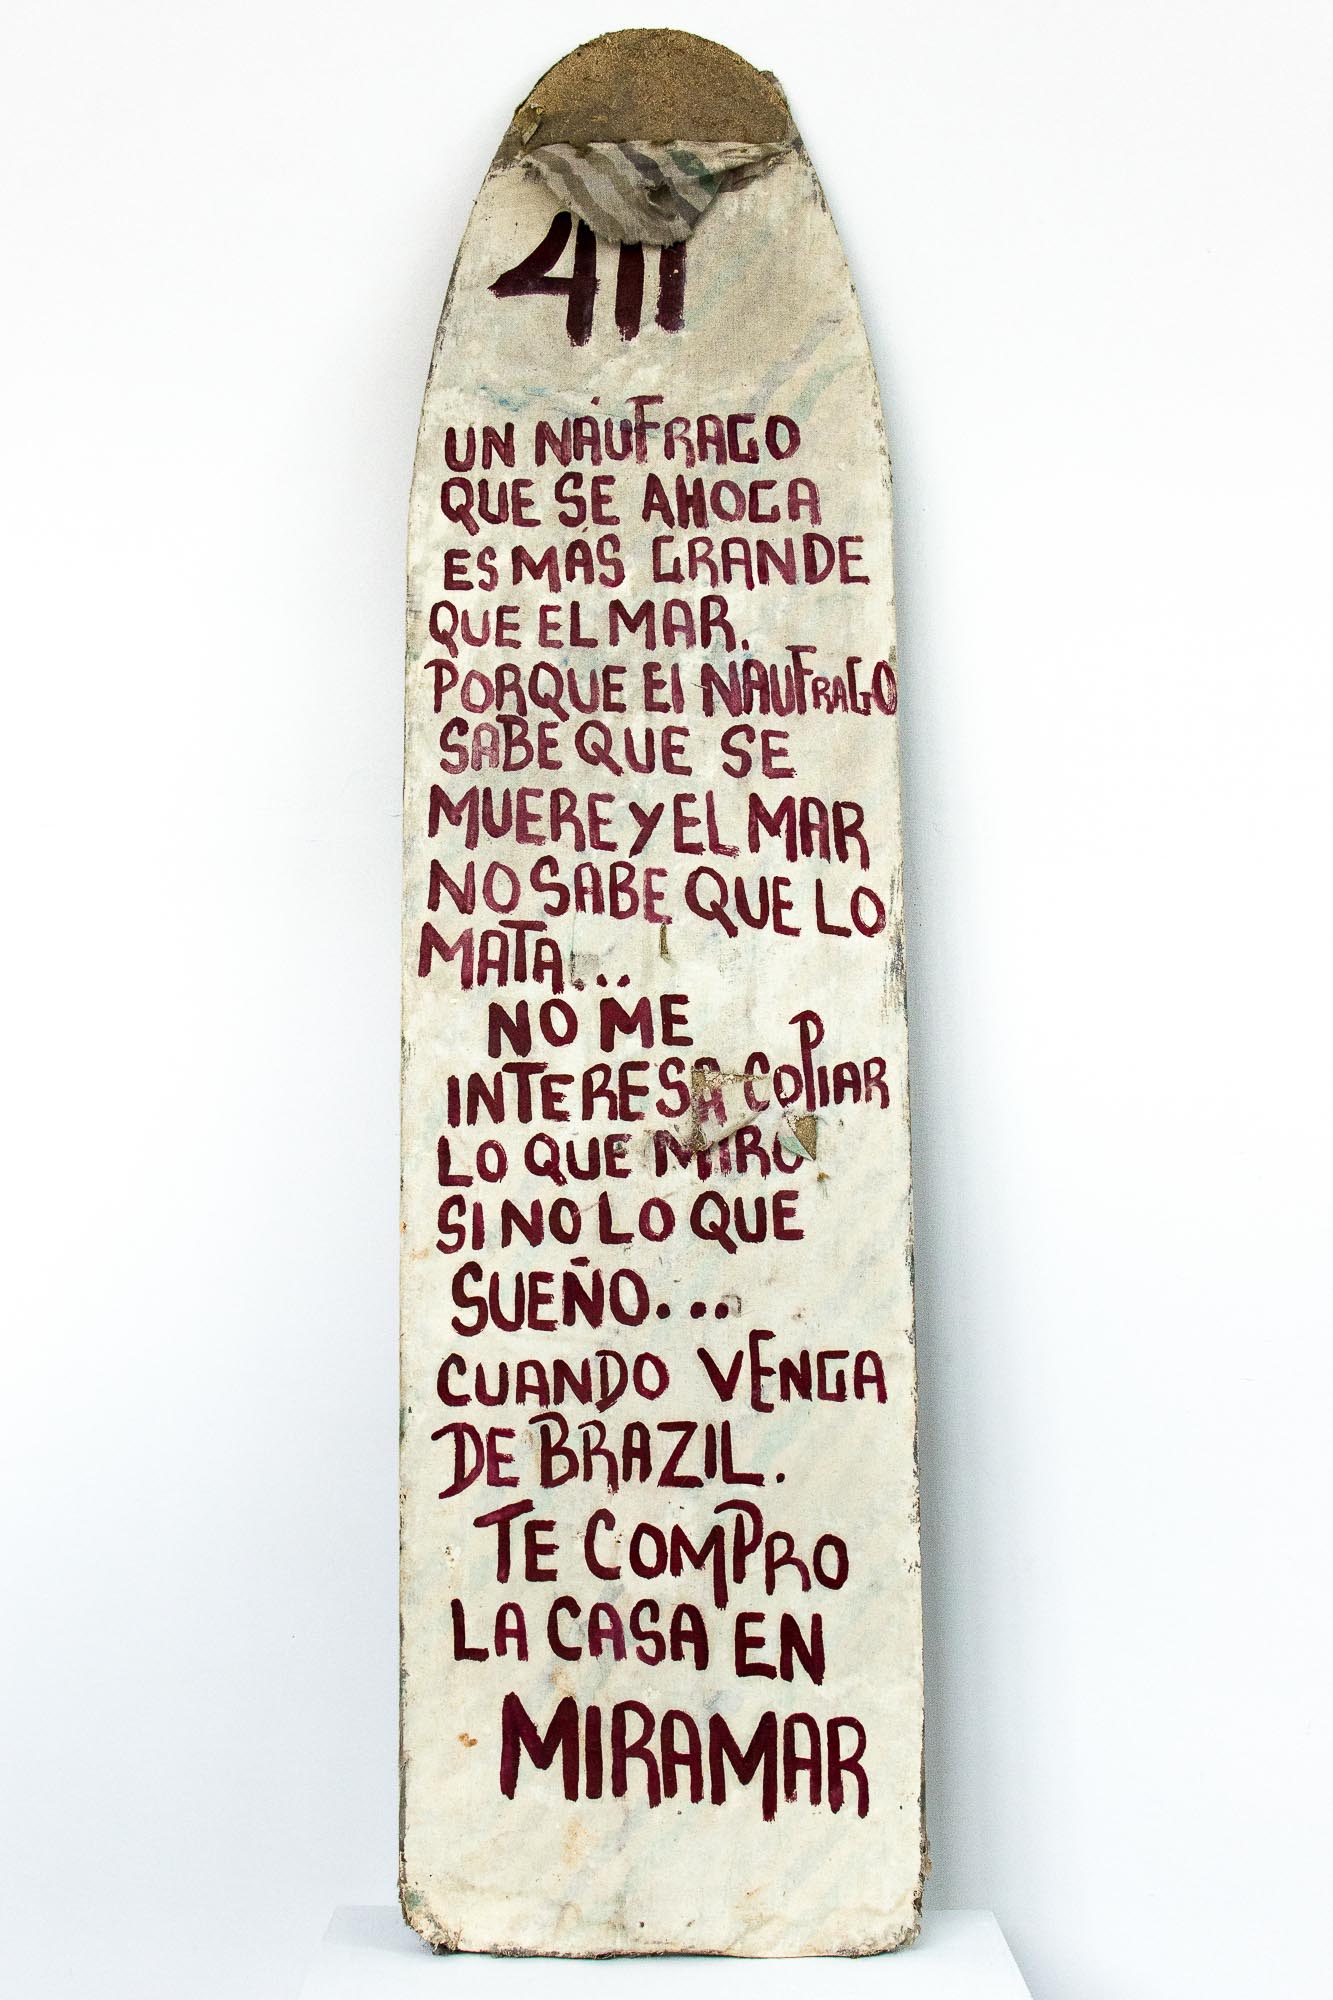 411
UN NÁUFRAGO
QUE SE AHOGA
ES MÁS GRANDE
QUE EL MAR.
PORQUE El NAUFRAGO
SABE QUE SE
MUERE Y EL MAR
NO SABE QUE LO
MATA...
NO ME
INTERESA COPIAR
LO QUE MIRO
SI NO LO QUE
SUEÑO...
CUANDO VENGA
DE BRAZIL.
TE COMPRO
LA CASA EN
MIRAMAR